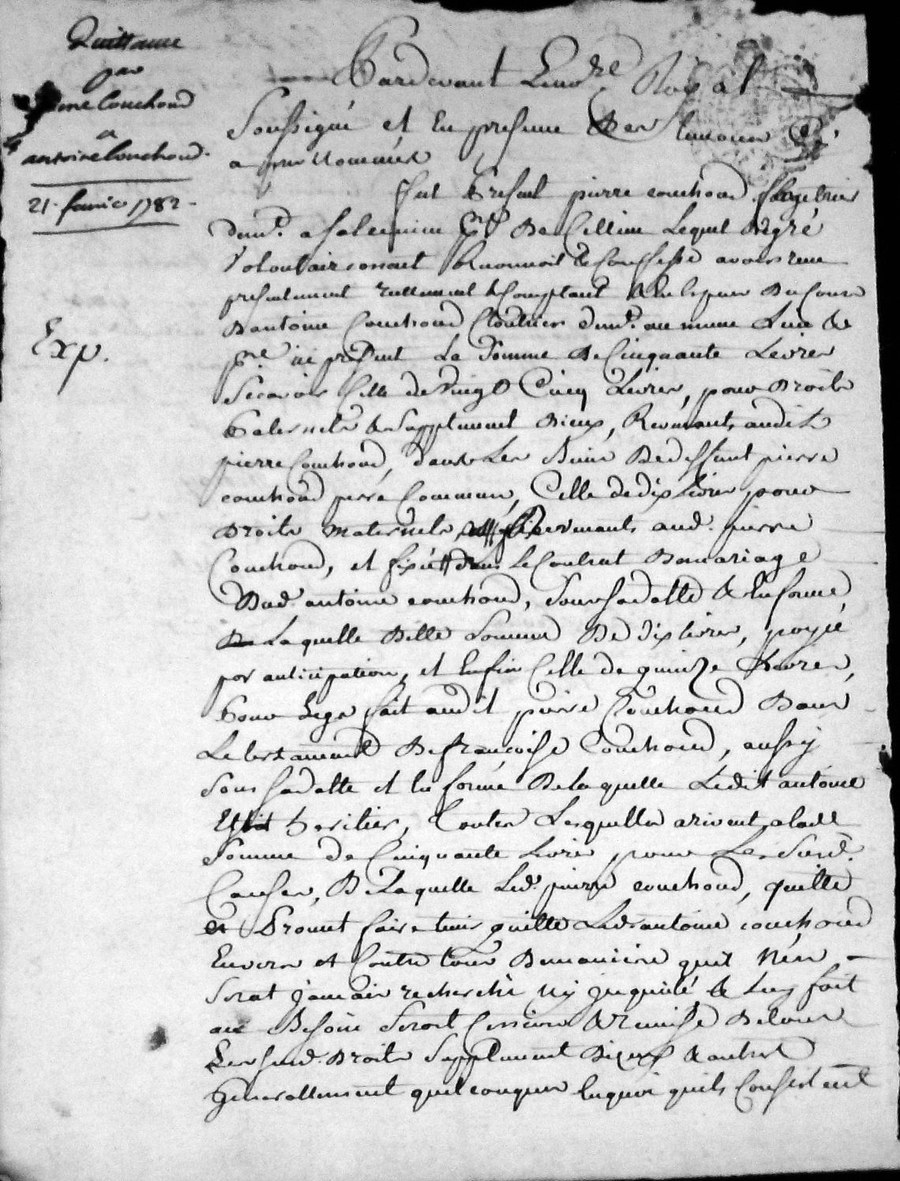 Quittance
par
pierre Couchoud
a
antoine Couchoud.
21. fevrier 1782.
Exp.
Pardevant Le no.re Royal
Soussigné et En presence Des temoins
a pres Nommés
fut present pierre couchoud
dem.t a De Lequel De gré
Volontairement Reconnoit & Confesse avoir recu
presentement reellement & Comptant
D'antoine Couchoud Cloutier dem.t au meme Lieu &
p.sse ici present La Somme De Cinquante Livres
Scavoir Celle de Vingt Cinq Livres, pour Droits
Paternels & Supplement D'iceux, Revenants audit
pierre Couchoud, dans Les Biens De deffunt pierre
couchoud pere Commun, Celle de dix Livres pour
Droits maternels revenants aud. pierre
Couchoud, et fixés dans Le Contrat De mariage
Dud. antoine couchoud, Sous Sa datte & En forme
De Laquelle Ditte Somme De dix livres, payé
par anticipation, et Enfin Celle de quinze Livres,
Pour Legs fait audit pierre Couchoud Dans
Le testament De françoise Couchoud, aussy
Sous Sa datte et En forme De laquelle Ledit antoine
Etoit heritier, Toutes Lesquelles arivent a lad.
Somme de Cinquante Livres pour Les Susd.
Causes, De Laquelle Led. pierre couchoud, quitte
et Promet faire tenir quitte Led. antoine couchoud
Envers et Contre tous De maniere qu'il N'en
Serat Jamais recherché Ny Inquieté &
au Besoin Cession & remise De tous
Les susd. Droits Supplement D'iceux & autres
Generallement quelconques En quoi qu'ils Consistent